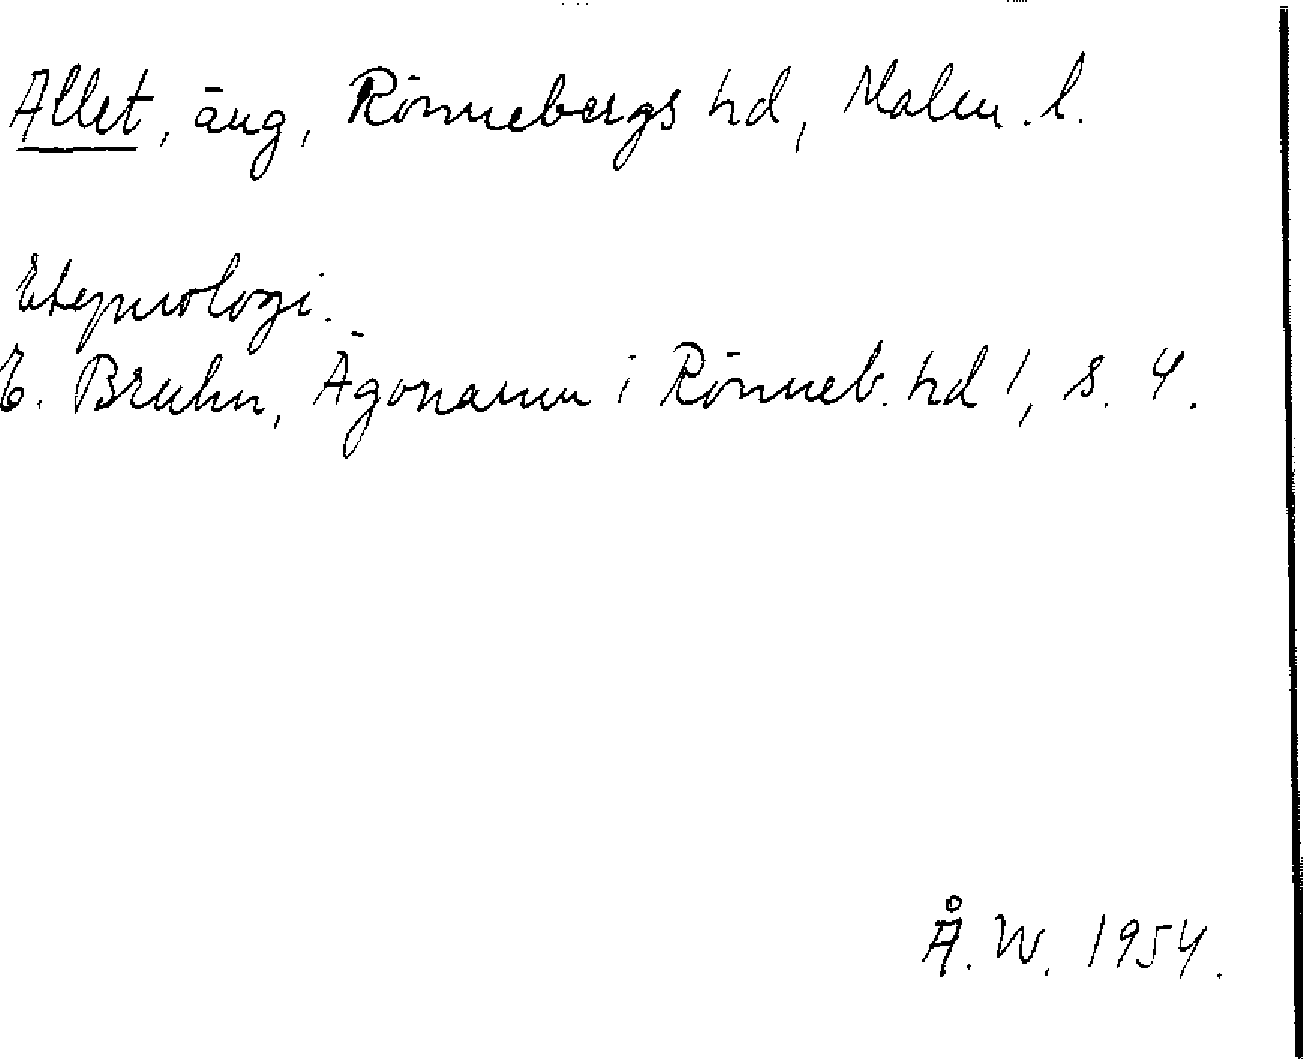 Allet, äng, Rönnebergs hd, Malm. l.
Etymologi.
E. Bruhn, Ägonamn i Rönneb. hd 1, s. 4.
Å. W. 1954.